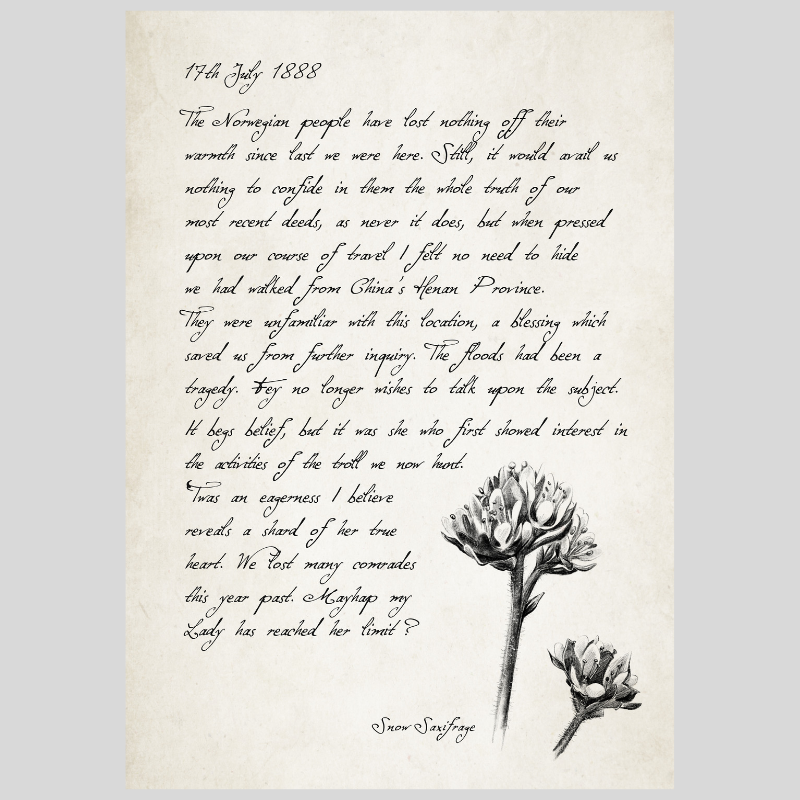 17th July 1888
The Norwegian people have lost nothing off their
warmth since last we were here. Still, it would avail us
nothing to confide in them the whole truth of our
most recent deeds, as never it does, but when pressed
upon our course of travel I felt no need to hide
we had walked from China's Henan Province.
They were unfamiliar with this location, a blessing which
saved us from further inquiry. The floods had been a
tragedy. Fey no longer wishes to talk upon the subject.
It begs belief, but it was she who first showed interest in
the activities of the troll we now hunt.
'Twas an eagerness I believe
reveals a shard of her true
heart. We lost many comrades
this year past. Mayhap my
Lady has reached her limit?
Snow Saxifrage